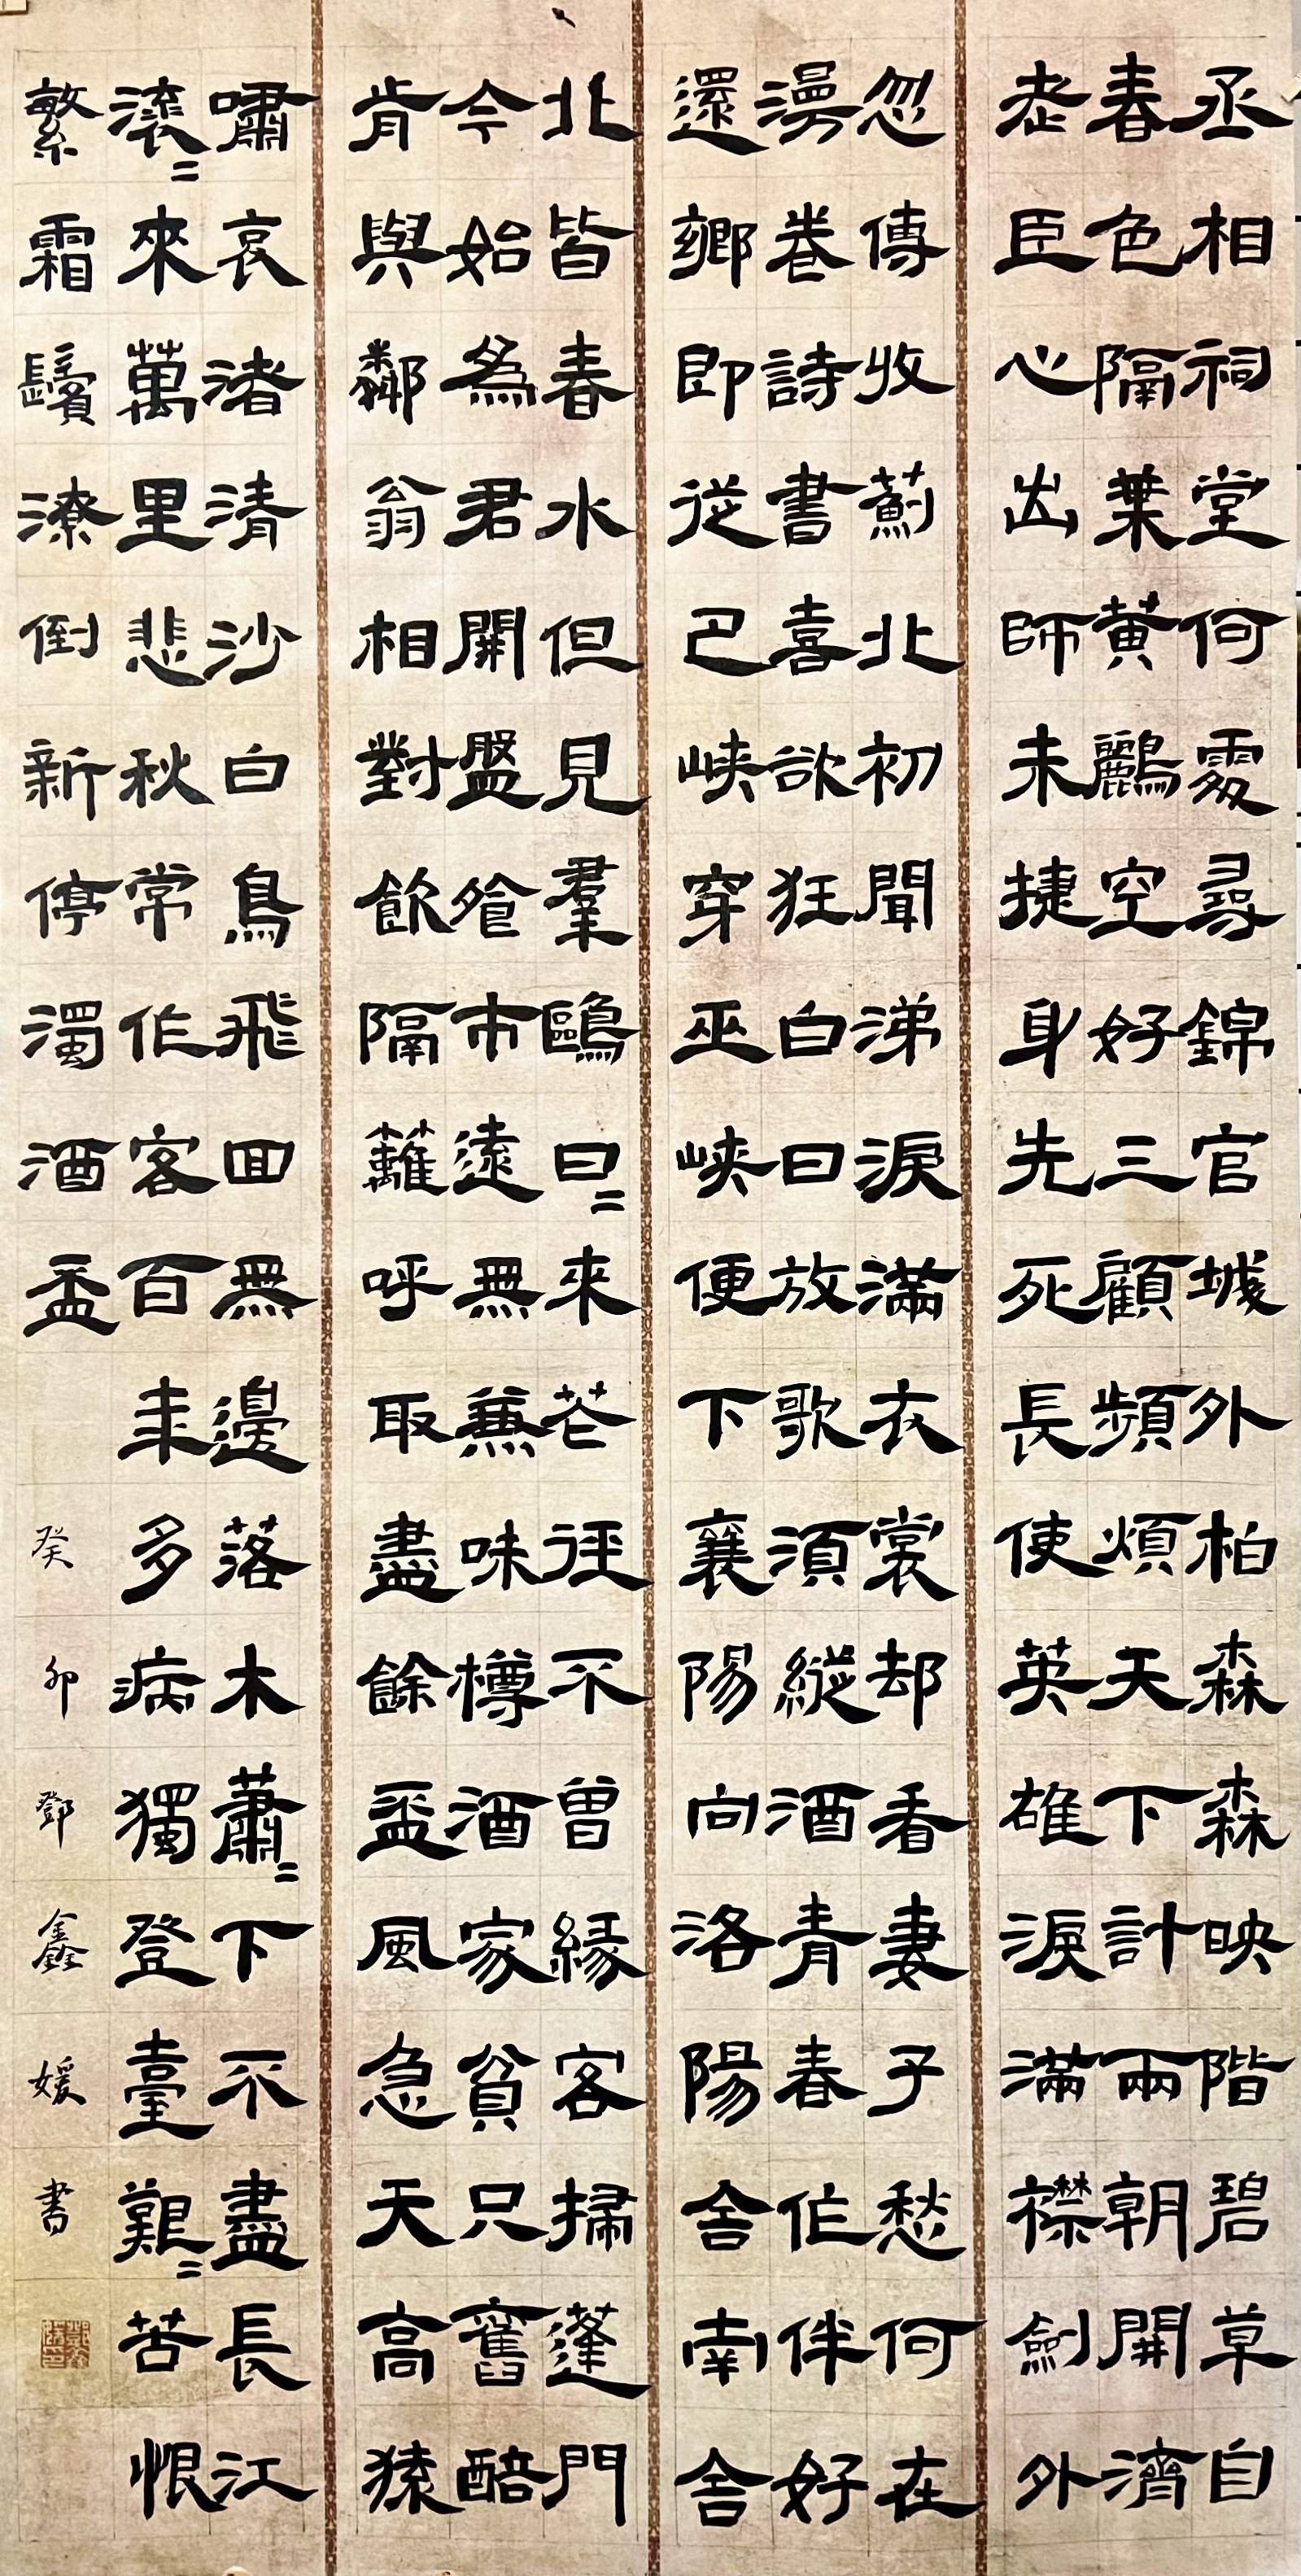 丞相祠堂何處尋錦官城外柏森森映階碧草自
春色隔葉黃鸝空好三顧頻煩天下計兩朝開濟
老臣心出師未捷身先死長使英雄淚滿襟劍外
忽傳收薊北初聞涕淚滿衣裳却看妻子愁何在
漫卷詩書喜欲狂白日放歌須縱酒青春作伴好
還鄉即從巴峽穿巫峽便下襄陽向洛陽舍南舍
北皆春水但見羣鷗日〻來花徑不曾緣客掃蓬門
今始為君開盤飧市遠無兼味樽酒家貧只舊醅
肯與鄰翁相對飲隔籬呼取盡餘盃風急天高猿
嘯哀渚清沙白鳥飛回無邊落木蕭〻下不盡長江
滾〻來萬里悲秋常作客百年多病獨登臺艱〻苦恨
繁霜鬢潦倒新停濁酒盃
癸卯鄧鑫媛書